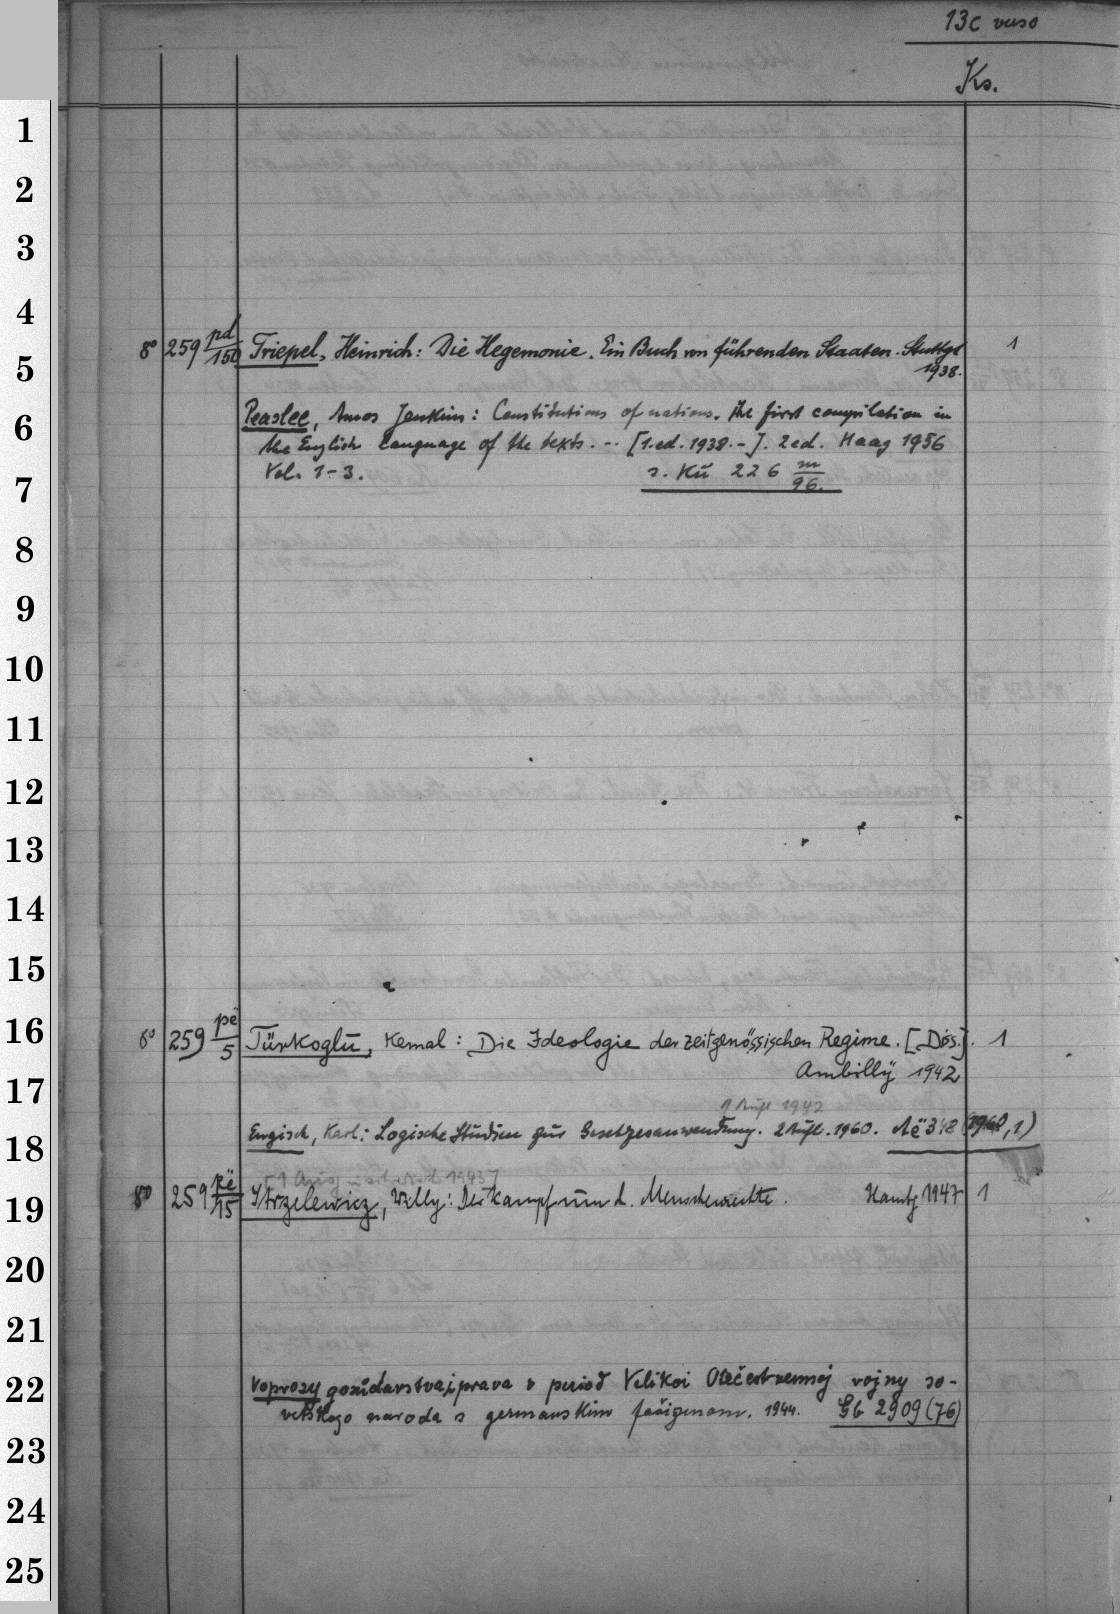 13c verso
Ks.
1
2
3
4
8° 259 pd/150 Triepel, Heinrich: Die Hegemonie. Ein Buch von führenden Staaten. Stuttgt 1
5
1938.
6 Peaslee, Amos Jenkins: Constitutions of nations. The first compilation in
the English language of the texts. -- [1. ed. 1938. -]. 2 ed. Haag 1956
7 Vol. 1-3. s. Kü 226 m/96.
8
9
10
11
12
13
14
15
16 8° 259 pë/5 Türkoglü, Kemal: Die Ideologie der zeitgenössischen Regime. [Diss.]. 1
Ambilly 1942
17
1 Aufl 1942
18 Engisch, Karl: Logische Studien zur Gesetzesanwendung. 2 Aufl. 1960. Aë 348 (1960, 1)
19 8° 259 pë/15 Strzelewicz, Willy: Der Kampf um d. Menschenrechte. Hambg 1947 1
20
21
22 Voprosy gosudarstva i prava v period Velikoi Otečestvennoj vojny so-
vetskogo naroda s germanskim fašizmom. 1944. Gb 2909 (76)
23
24
25